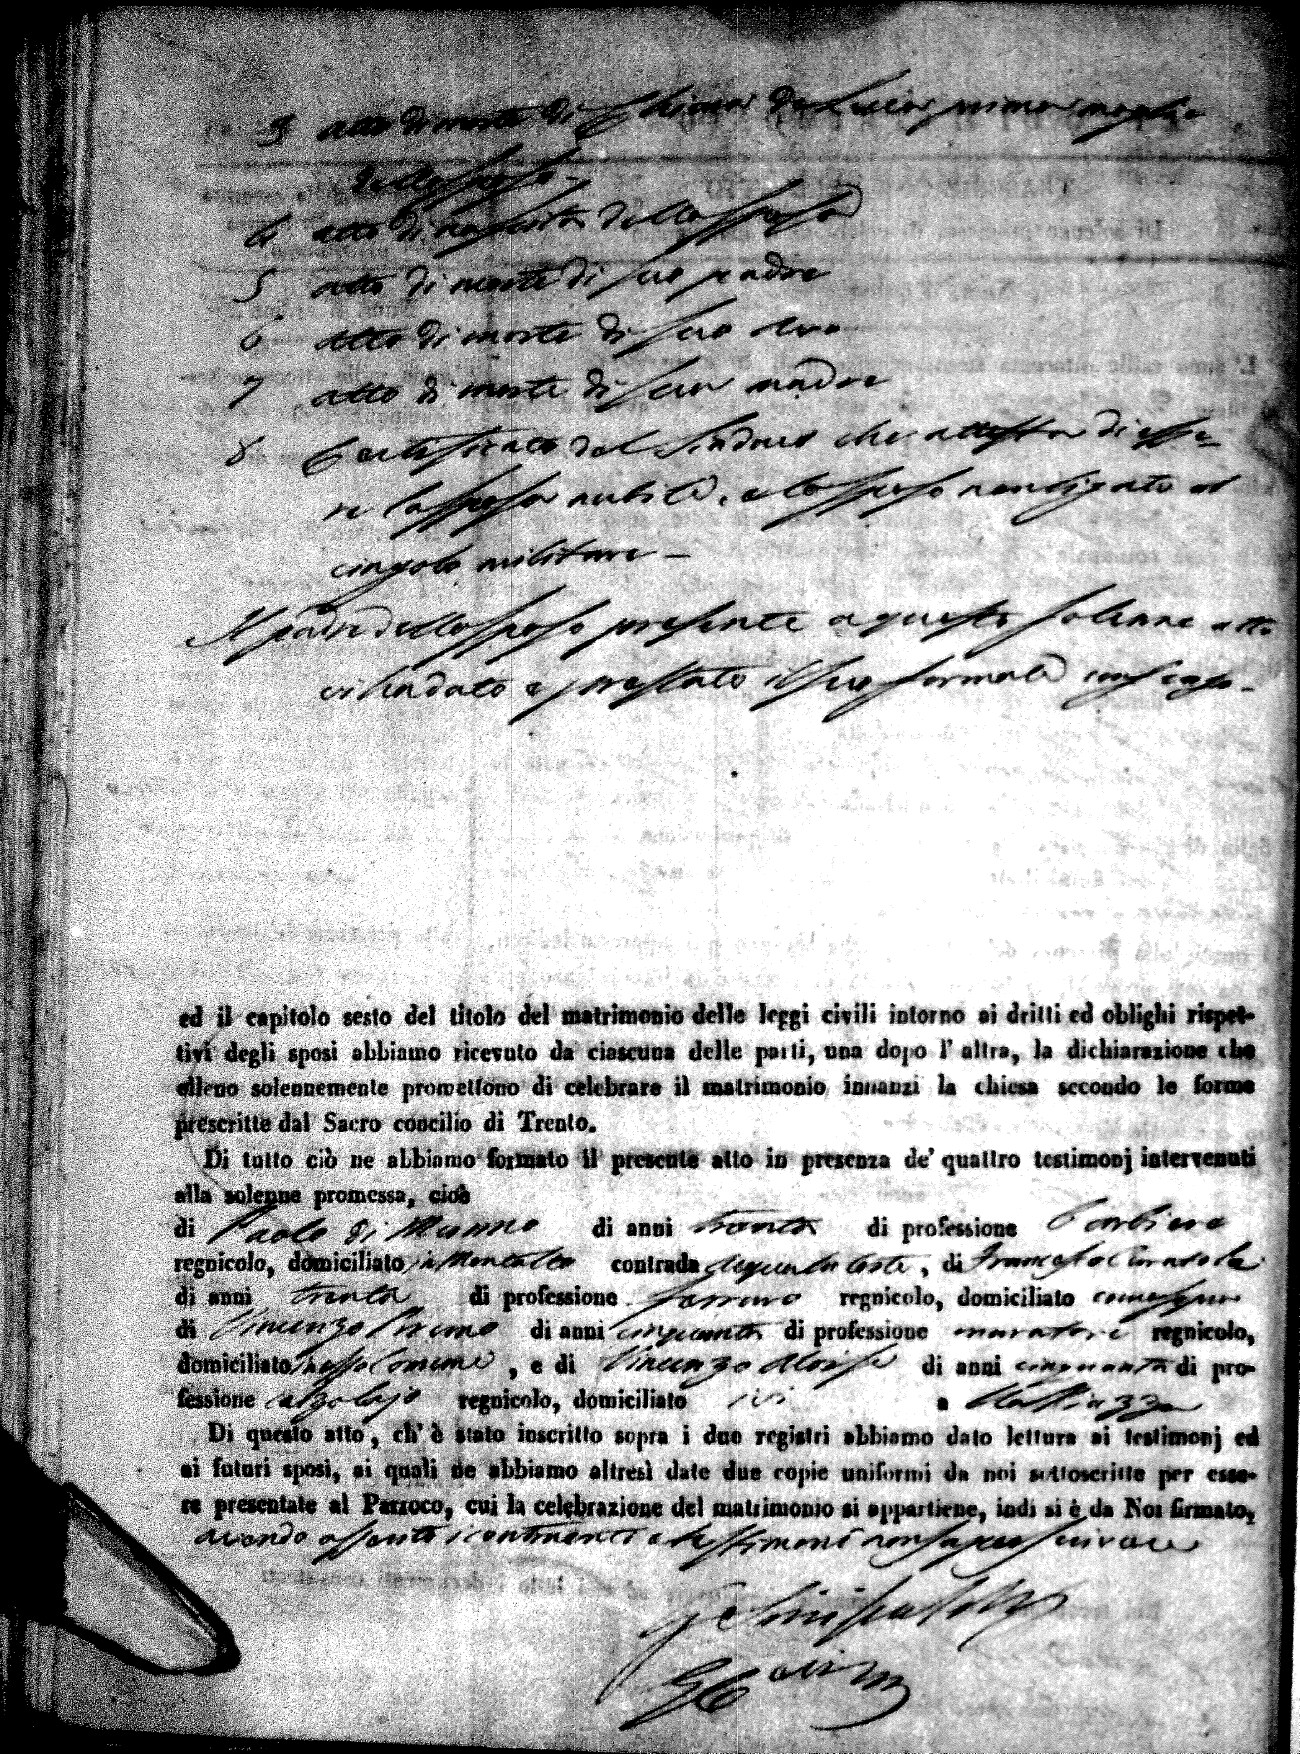 3 atto di morte di Chiara De Luca prima moglie
dello sposo -
4 atto di nascita della sposa
5 atto di morte di suo padre
6 atto di morte di suo avo
7 atto di morte di sua madre
8 Certificato del Sindaco che attesta di esse=
re la sposa nubile, e lo sposo non ligato al
cingolo militare -
Il padre dello sposo presente a questo solenne atto
vi ha dato e prestato il suo formale consenso -
ed il capitolo sesto del titolo del matrimonio delle leggi civili intorno ai dritti ed oblighi rispet-
tivi degli sposi abbiamo ricevuto da ciascuna delle parti, una dopo l' altra, la dichiarazione che
elleno solennemente promettono di celebrare il matrimonio innanzi la chiesa secondo le forme
prescritte dal Sacro concilio di Trento.
Di tutto ciò ne abbiamo formato il presente atto in presenza de' quattro testimonj intervenuti
alla solenne promessa, cioè
di Paolo di Munno di anni trenta di professione barbiere
regnicolo, domiciliato in Montalto contrada , di Francesco
di anni trenta di professione ferraro regnicolo, domiciliato
di Vincenzo di anni cinquanta di professione muratore regnicolo,
domiciliato in esso Comune , e di Vincenzo Aloise di anni cinquanta di pro-
fessione calzolajo regnicolo, domiciliato ivi a la Piazza
Di questo atto, ch' è stato inscritto sopra i due registri abbiamo dato lettura ai testimonj ed
ai futuri sposi, ai quali ne abbiamo altresì date due copie uniformi da noi sottoscritte per esse-
re presentate al Parroco, cui la celebrazione del matrimonio si appartiene, indi si è da Noi firmato,
avendo asserito i contraenti e testimoni non saper scrivere